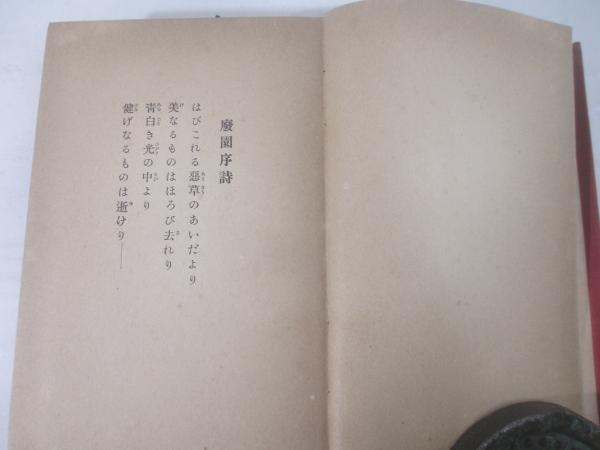 廢園序詩
はびこれる惡草のあいだより
美なるものはほろび去れり
青白き光の中より
健げなるものは逝けり――